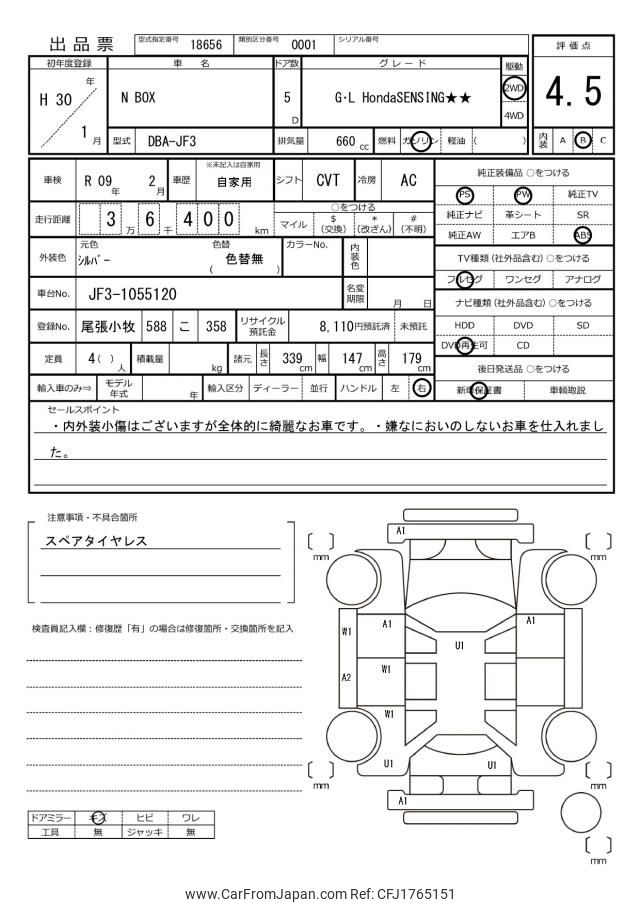 出品票
型式指定番号 18656 類別区分番号 0001 シリアル番号
評価点
4.5
初年度登録 車名 ドア数 グレード 駆動
H 30 年 / 1 月
N BOX
5 D
G・L HondaSENSING★★
2WD
4WD
型式 DBA-JF3 排気量 660 cc 燃料 ガソリン 軽油 ( )
内装 A B C
車検 R 09 年 2 月 車歴 ※未記入は自家用 自家用 シフト CVT 冷房 AC
走行距離 3 万 6 千 4 0 0 km
○をつける
マイル $(交換) *(改ざん) #(不明)
外装色 元色 シルバー 色替 ( 色替無 ) カラーNo. 内装色
車台No. JF3-1055120 名変期限 月 日
登録No. 尾張小牧 588 こ 358 リサイクル預託金 8,110円預託済 未預託
定員 4( )人 積載量 kg 諸元 長さ 339 cm 幅 147 cm 高さ 179 cm
輸入車のみ⇒ モデル年式 年 輸入区分 ディーラー 並行 ハンドル 左 右
純正装備品 ○をつける
PS PW 純正TV
純正ナビ 革シート SR
純正AW エアB ABS
TV種類(社外品含む)○をつける
フルセグ ワンセグ アナログ
ナビ種類(社外品含む)○をつける
HDD DVD SD
DVD再生可 CD
後日発送品 ○をつける
新車保証書 車輌取説
セールスポイント
・内外装小傷はございますが全体的に綺麗なお車です。・嫌なにおいのしないお車を仕入れまし
た。
注意事項・不具合箇所
スペアタイヤレス
検査員記入欄:修復歴「有」の場合は修復箇所・交換箇所を記入
A1
[ ] mm
[ ] mm
W1 A1 A1
U1
A2 W1
W1
U1 U1
[ ] mm
[ ] mm
A1
[ ] mm
ドアミラー キズ ヒビ ワレ
工具 無 ジャッキ 無
www.CarFromJapan.com Ref: CFJ1765151